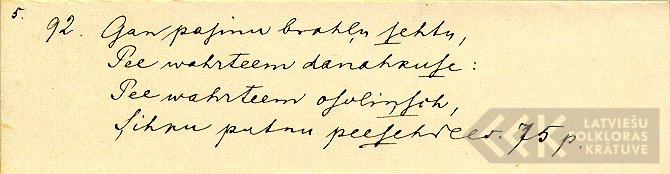 5.
92. Gan pasinu brahļu sehtu,
Pee wahrteem danahkuse:
Pee wahrteem osoliņsch,
sihku putnu peesehdees. 75 p.
LATVIEŠU
FOLKLORAS
KRĀTUVE